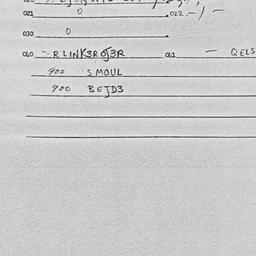 021 0 022 - / -
030 0
040 - RLINK3ROJ3R 041 - QELS
900 SMOUL
900 BEJD3